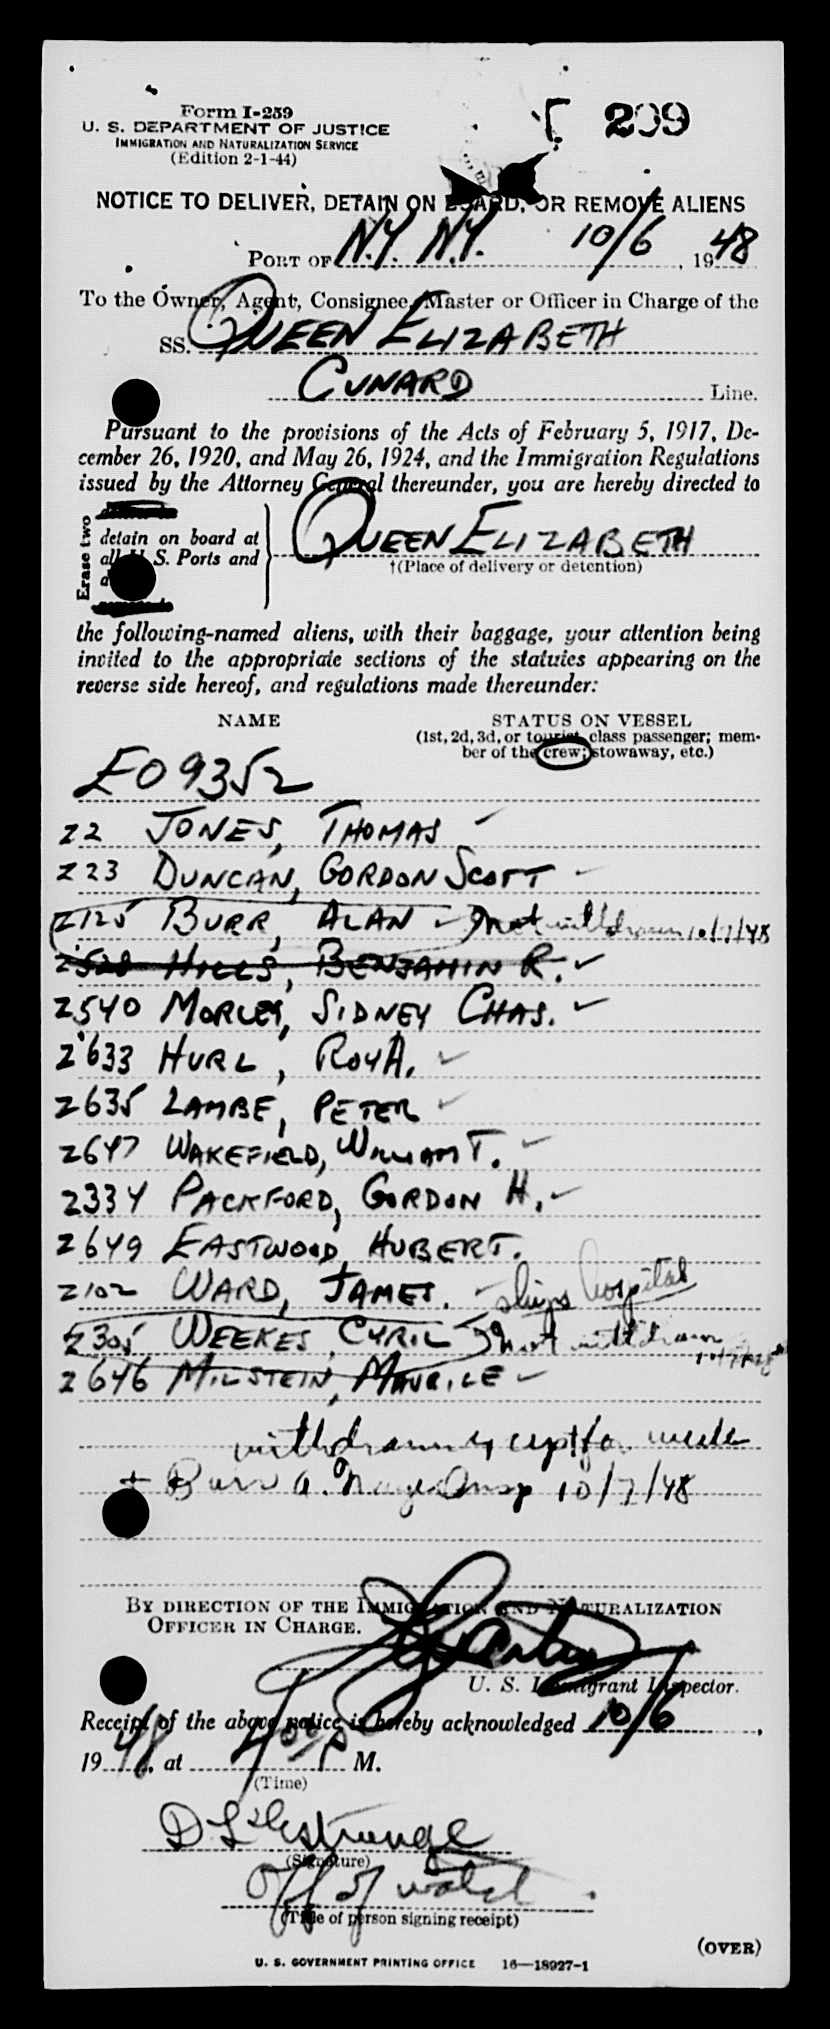 Form I-259
299
U. S. DEPARTMENT OF JUSTICE
IMMIGRATION AND NATURALIZATION SERVICE
(Edition 2-1-44)
NOTICE TO DELIVER, DETAIN ON BOARD, OR REMOVE ALIENS
PORT OF N.Y. N.Y. 10/6, 1948
To the Owner, Agent, Consignee, Master or Officer in Charge of the
SS. QUEEN ELIZABETH
CUNARD Line.
Pursuant to the provisions of the Acts of February 5, 1917, De-
cember 26, 1920, and May 26, 1924, and the Immigration Regulations
issued by the Attorney General thereunder, you are hereby directed to
Erase two
detain on board at
all U. S. Ports and
QUEEN ELIZABETH
†(Place of delivery or detention)
the following-named aliens, with their baggage, your attention being
invited to the appropriate sections of the statutes appearing on the
reverse side hereof, and regulations made thereunder:
NAME STATUS ON VESSEL
(1st, 2d, 3d, or tourist class passenger; mem-
ber of the crew; stowaway, etc.)
E09352
Z2 JONES, THOMAS
Z23 DUNCAN, GORDON SCOTT
Z125 BURR, ALAN not withdrawn 10/7/48
Z528 HILLS, BENJAMIN R.
Z540 MORLEY, SIDNEY CHAS.
Z633 HURL, ROY A.
Z635 LAMBE, PETER
Z647 WAKEFIELD, WILLIAM T.
Z334 PACKFORD, GORDON H.
Z649 EASTWOOD, HUBERT.
Z102 WARD, JAMES. ships hospital
Z305 WEEKES, CYRIL not withdrawn
Z646 MILSTEIN, MAURICE
withdrawn except for
+ Burr A. Insp 10/7/48
BY DIRECTION OF THE IMMIGRATION AND NATURALIZATION
OFFICER IN CHARGE.
U. S. Immigrant Inspector.
Receipt of the above notice is hereby acknowledged 10/6,
1948, at 4 P M.
(Time)
D L'Estrange
(Signature)
Off of watch
(Title of person signing receipt)
(OVER)
U. S. GOVERNMENT PRINTING OFFICE 16—18927-1